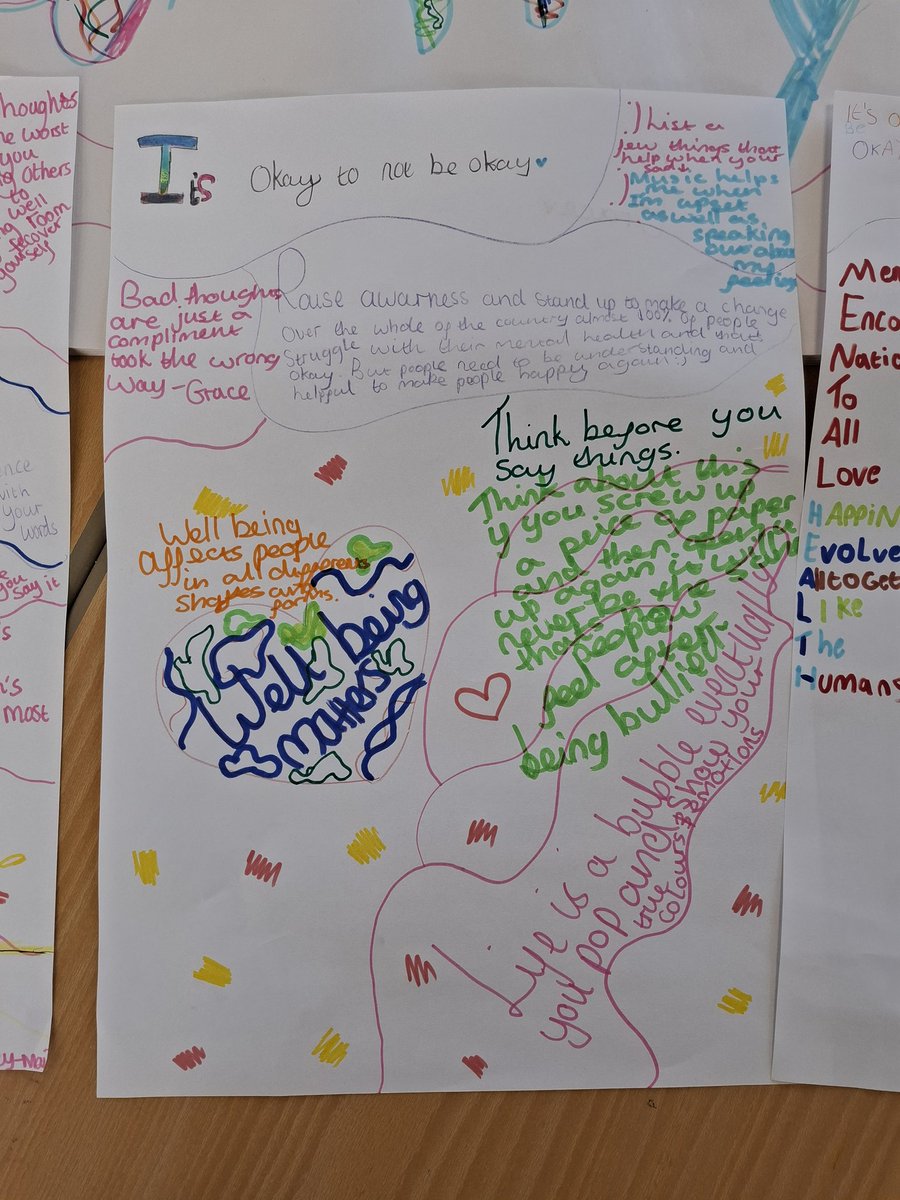 thoughts
worst
you
others
to
well
room
recover
yourself
with
your
words
you say it
most
It's Okay to not be okay
:) List a
few things that
help when your
sad:
:) Music helps
me when
I'm upset
aswell as
speaking
out about
my
feelings
Bad thoughts
are just a
compliment
took the wrong
way - Grace
Raise awarness and stand up to make a change
Over the whole of the country almost 100% of people
struggle with their mental health and thats
okay. But people need to be understanding and
helpful to make people happy again :)
Think before you
say things.
Think about this
if you screw up
a peice of paper
and then
up again it will
never be the same
that's how
people
feel after
being bullied.
Well being
affects people
in all different
shapes and
forms.
Well being
matters
Life is a bubble eventually
you pop and show your
true colours & emotions
IT'S O
BE
OKA
Men
Enco
Natio
To
All
Love
HAPPIN
Evolve
AlltoGet
Like
The
Humans